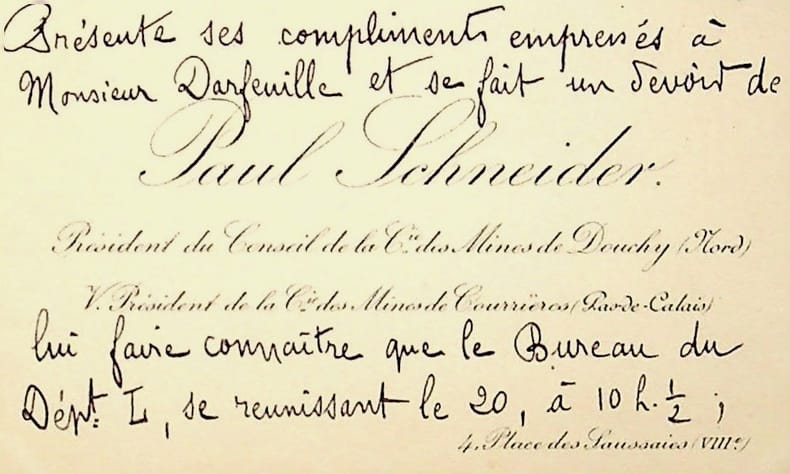 Présente ses compliments empressés à
Monsieur Darfeuille et se fait un devoir de
Paul Schneider.
Président du Conseil de la Cie des Mines de Douchy (Nord)
V. Président de la Cie des Mines de Courrières (Pas-de-Calais)
lui faire connaître que le Bureau du
Dépt. L, se reunissant le 20, à 10 h. 1/2 ;
4, Place des Saussaies (VIIIe)